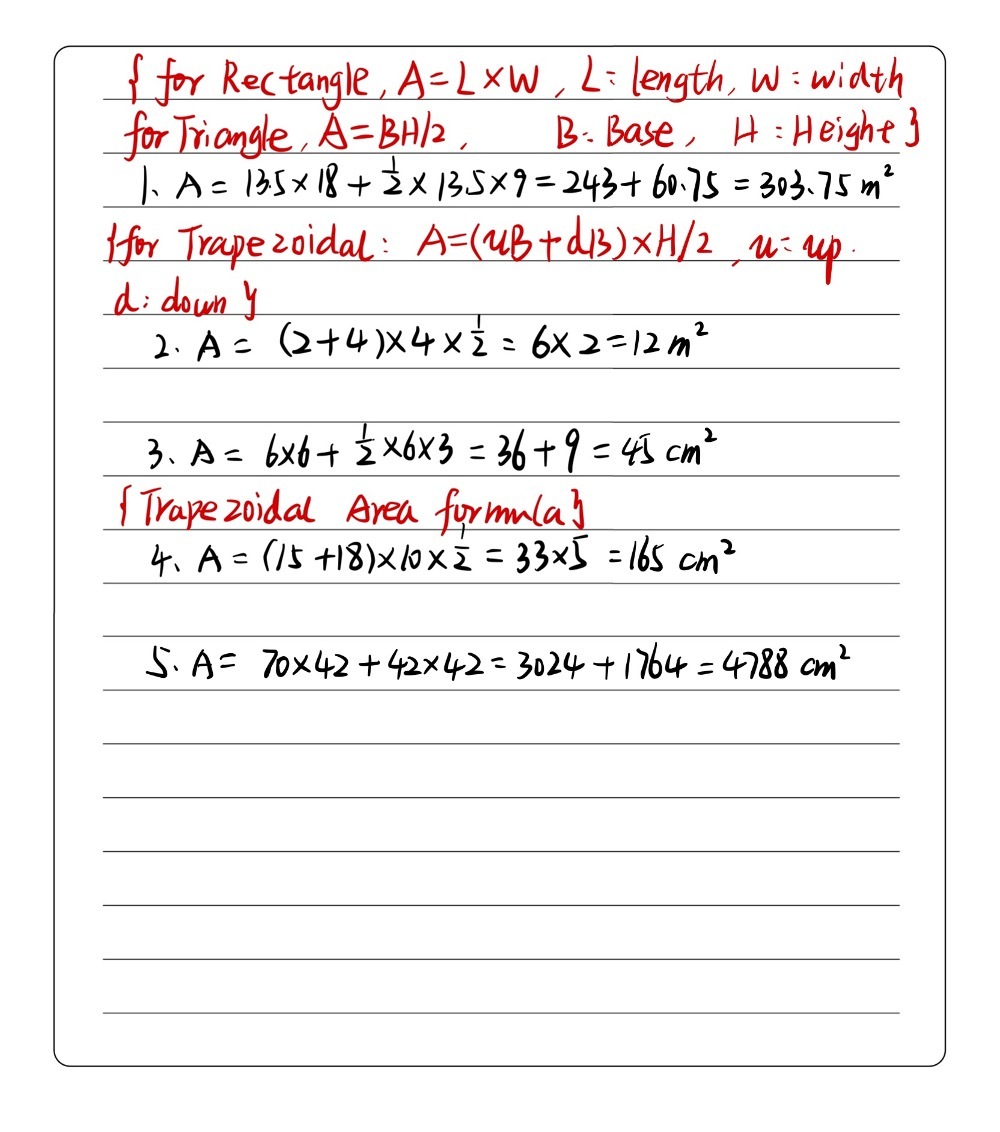 { for Rectangle, A=L×W, L: length, W: width
for Triangle, A=BH/2, B: Base, H: Height }
1、A = 13.5×18 + 1/2 × 13.5×9 = 243 + 60.75 = 303.75 m²
{for Trapezoidal: A=(uB+dB)×H/2, u: up.
d: down }
2. A = (2+4)×4×1/2 = 6×2=12 m²
3、A = 6×6 + 1/2×6×3 = 36+9 = 45 cm²
{Trapezoidal Area formula}
4、A = (15+18)×10×1/2 = 33×5 = 165 cm²
5. A = 70×42+42×42 = 3024+1764 = 4788 cm²